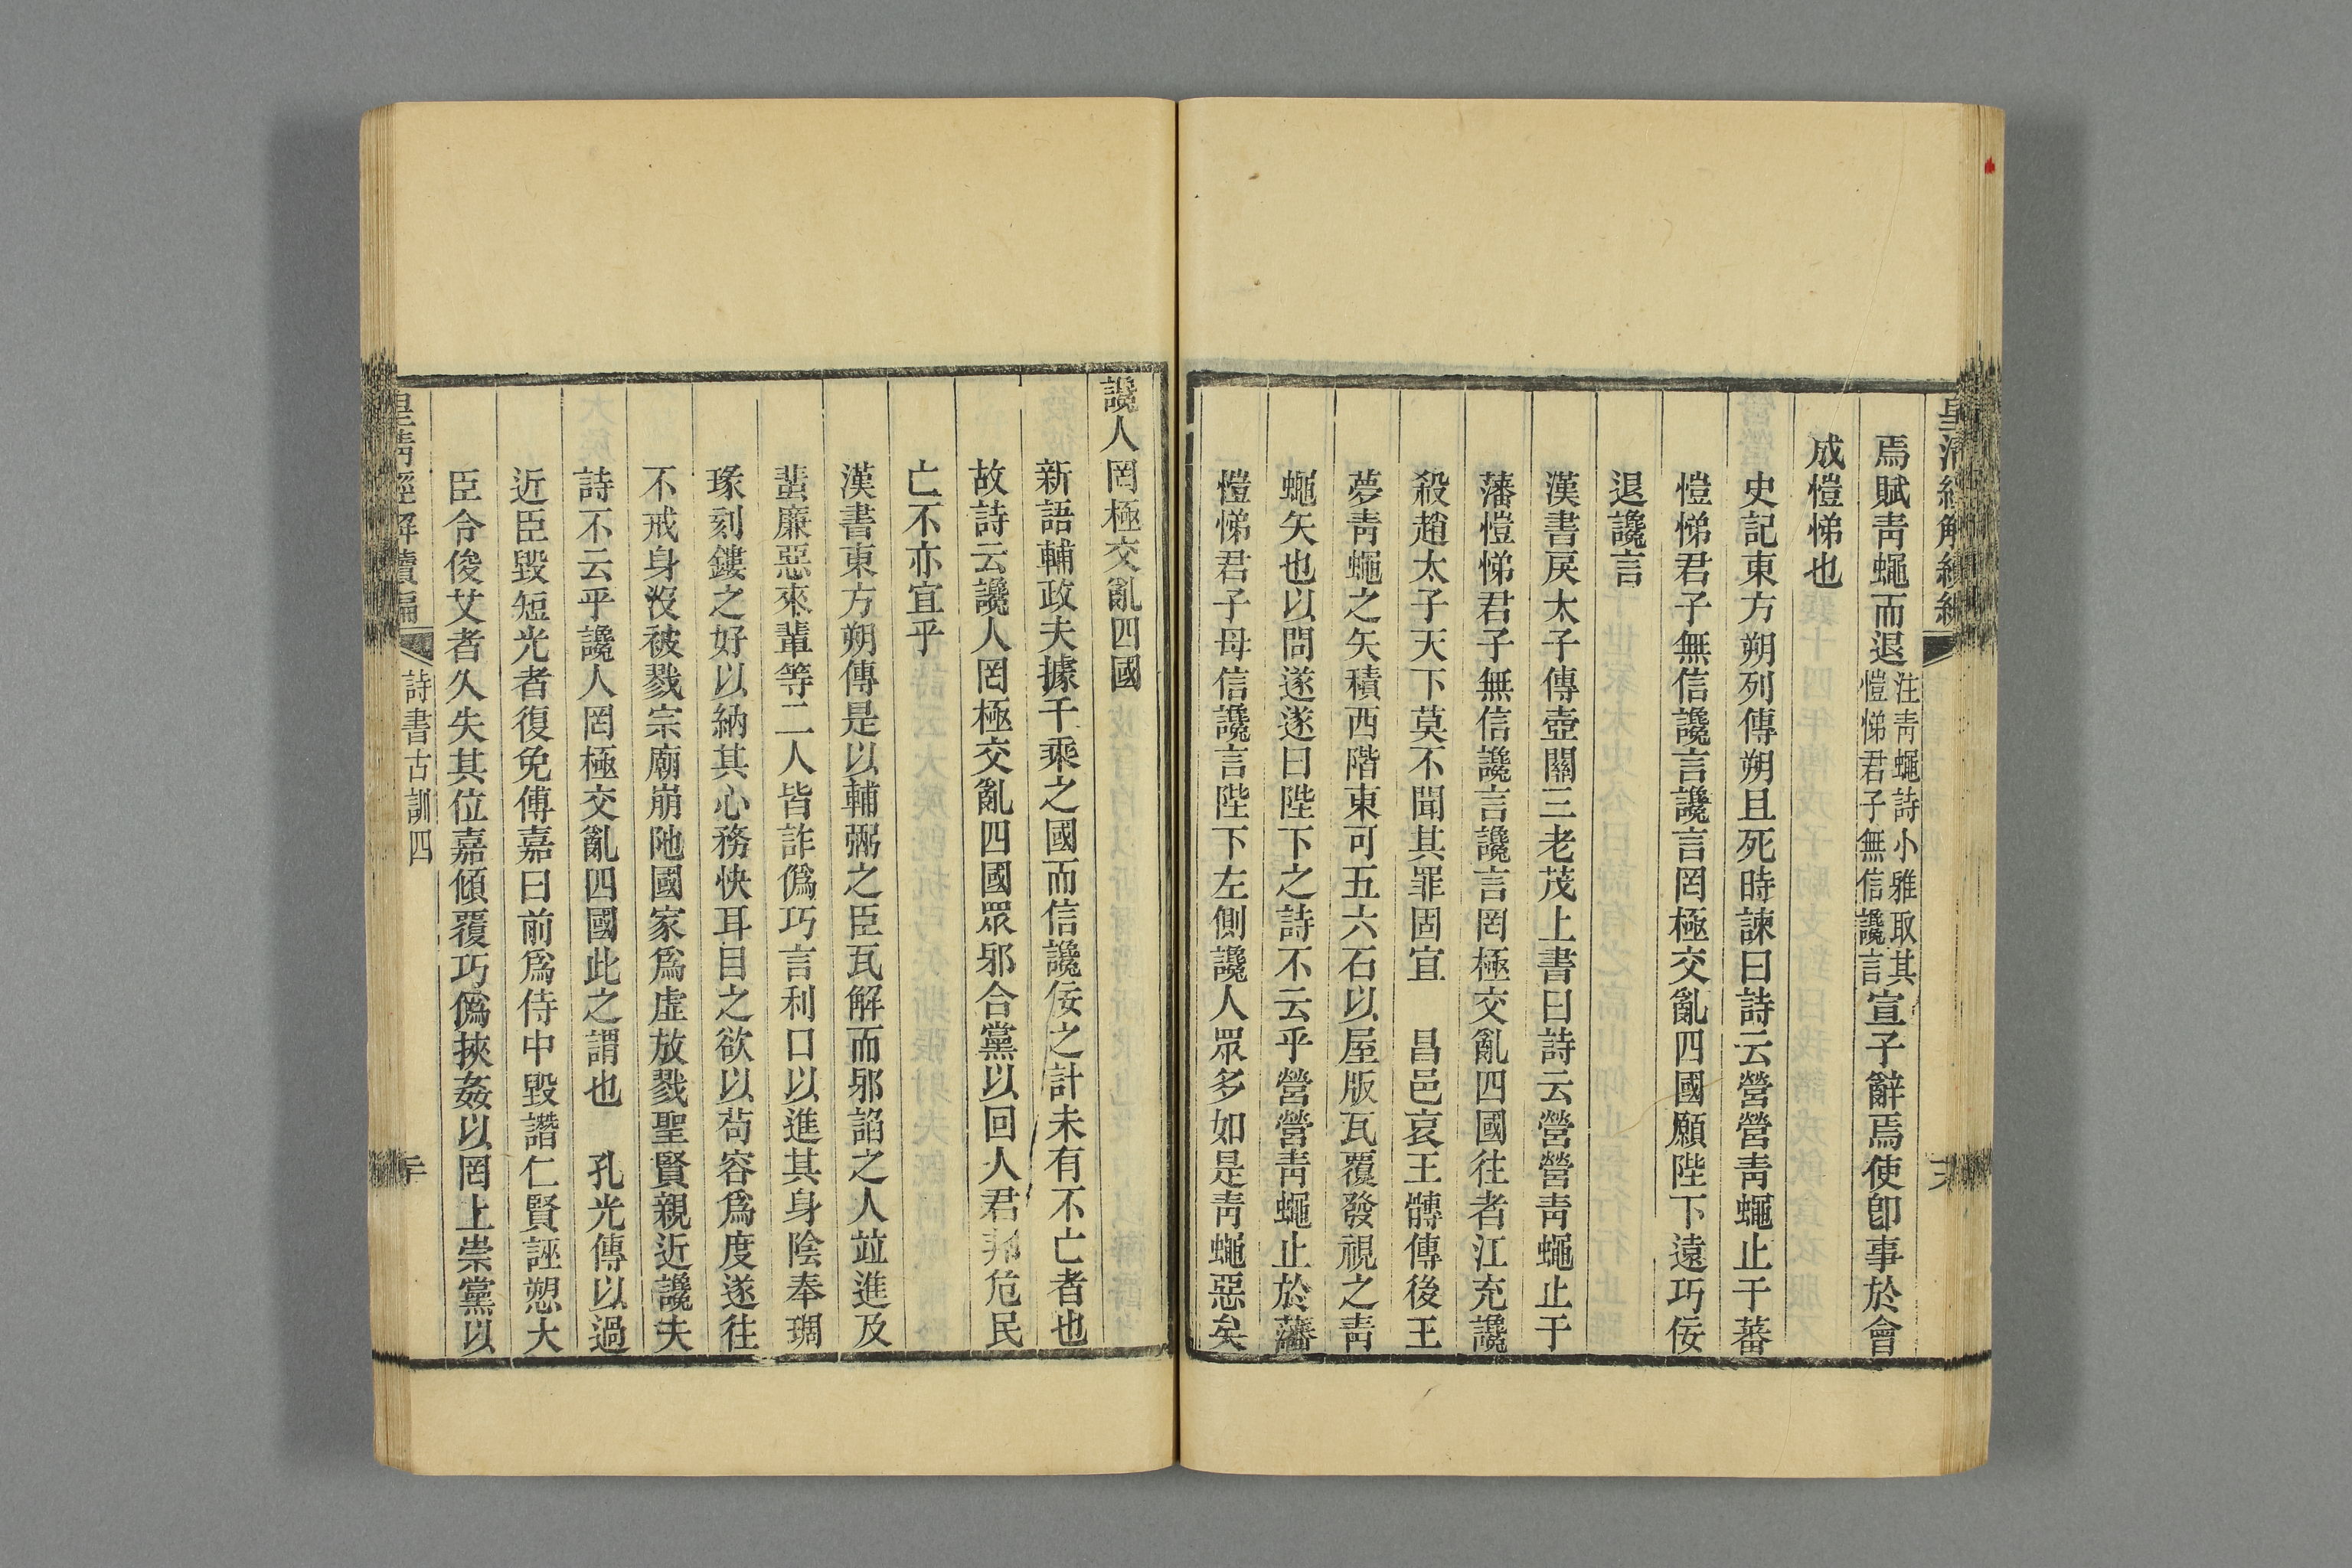 焉賦靑蠅而退注靑蠅詩小雅取其愷悌君子無信讒言宣子辭焉使卽事於會
成愷悌也
史記東方朔列傳朔且死時諫曰詩云營營靑蠅止于蕃
愷悌君子無信讒言讒言罔極交亂四國願陛下遠巧佞
退讒言
漢書戾太子傳壺關三老茂上書曰詩云營營靑蠅止于
藩愷悌君子無信讒言讒言罔極交亂四國往者江充讒
殺趙太子天下莫不聞其罪固宜　昌邑哀王髆傳後王
夢靑蠅之矢積西階東可五六石以屋版瓦覆發視之靑
蠅矢也以問遂遂曰陛下之詩不云乎營營靑蠅止於藩
愷悌君子毋信讒言陛下左側讒人眾多如是靑蠅惡矣
讒人罔極交亂四國
新語輔政夫據千乘之國而信讒佞之計未有不亡者也
故詩云讒人罔極交亂四國眾邪合黨以回人君邦危民
亡不亦宜乎
漢書東方朔傳是以輔弼之臣瓦解而邪諂之人竝進及
蜚廉惡來輩等二人皆詐僞巧言利口以進其身陰奉琱
瑑刻鏤之好以納其心務快耳目之欲以苟容爲度遂往
不戒身沒被戮宗廟崩阤國家爲虛放戮聖賢親近讒夫
詩不云乎讒人罔極交亂四國此之謂也　孔光傳以過
近臣毀短光者復免傅嘉曰前爲侍中毀譖仁賢誣愬大
臣令俊艾者久失其位嘉傾覆巧僞挾姦以罔上崇黨以
皇淸經解續編　詩書古訓四